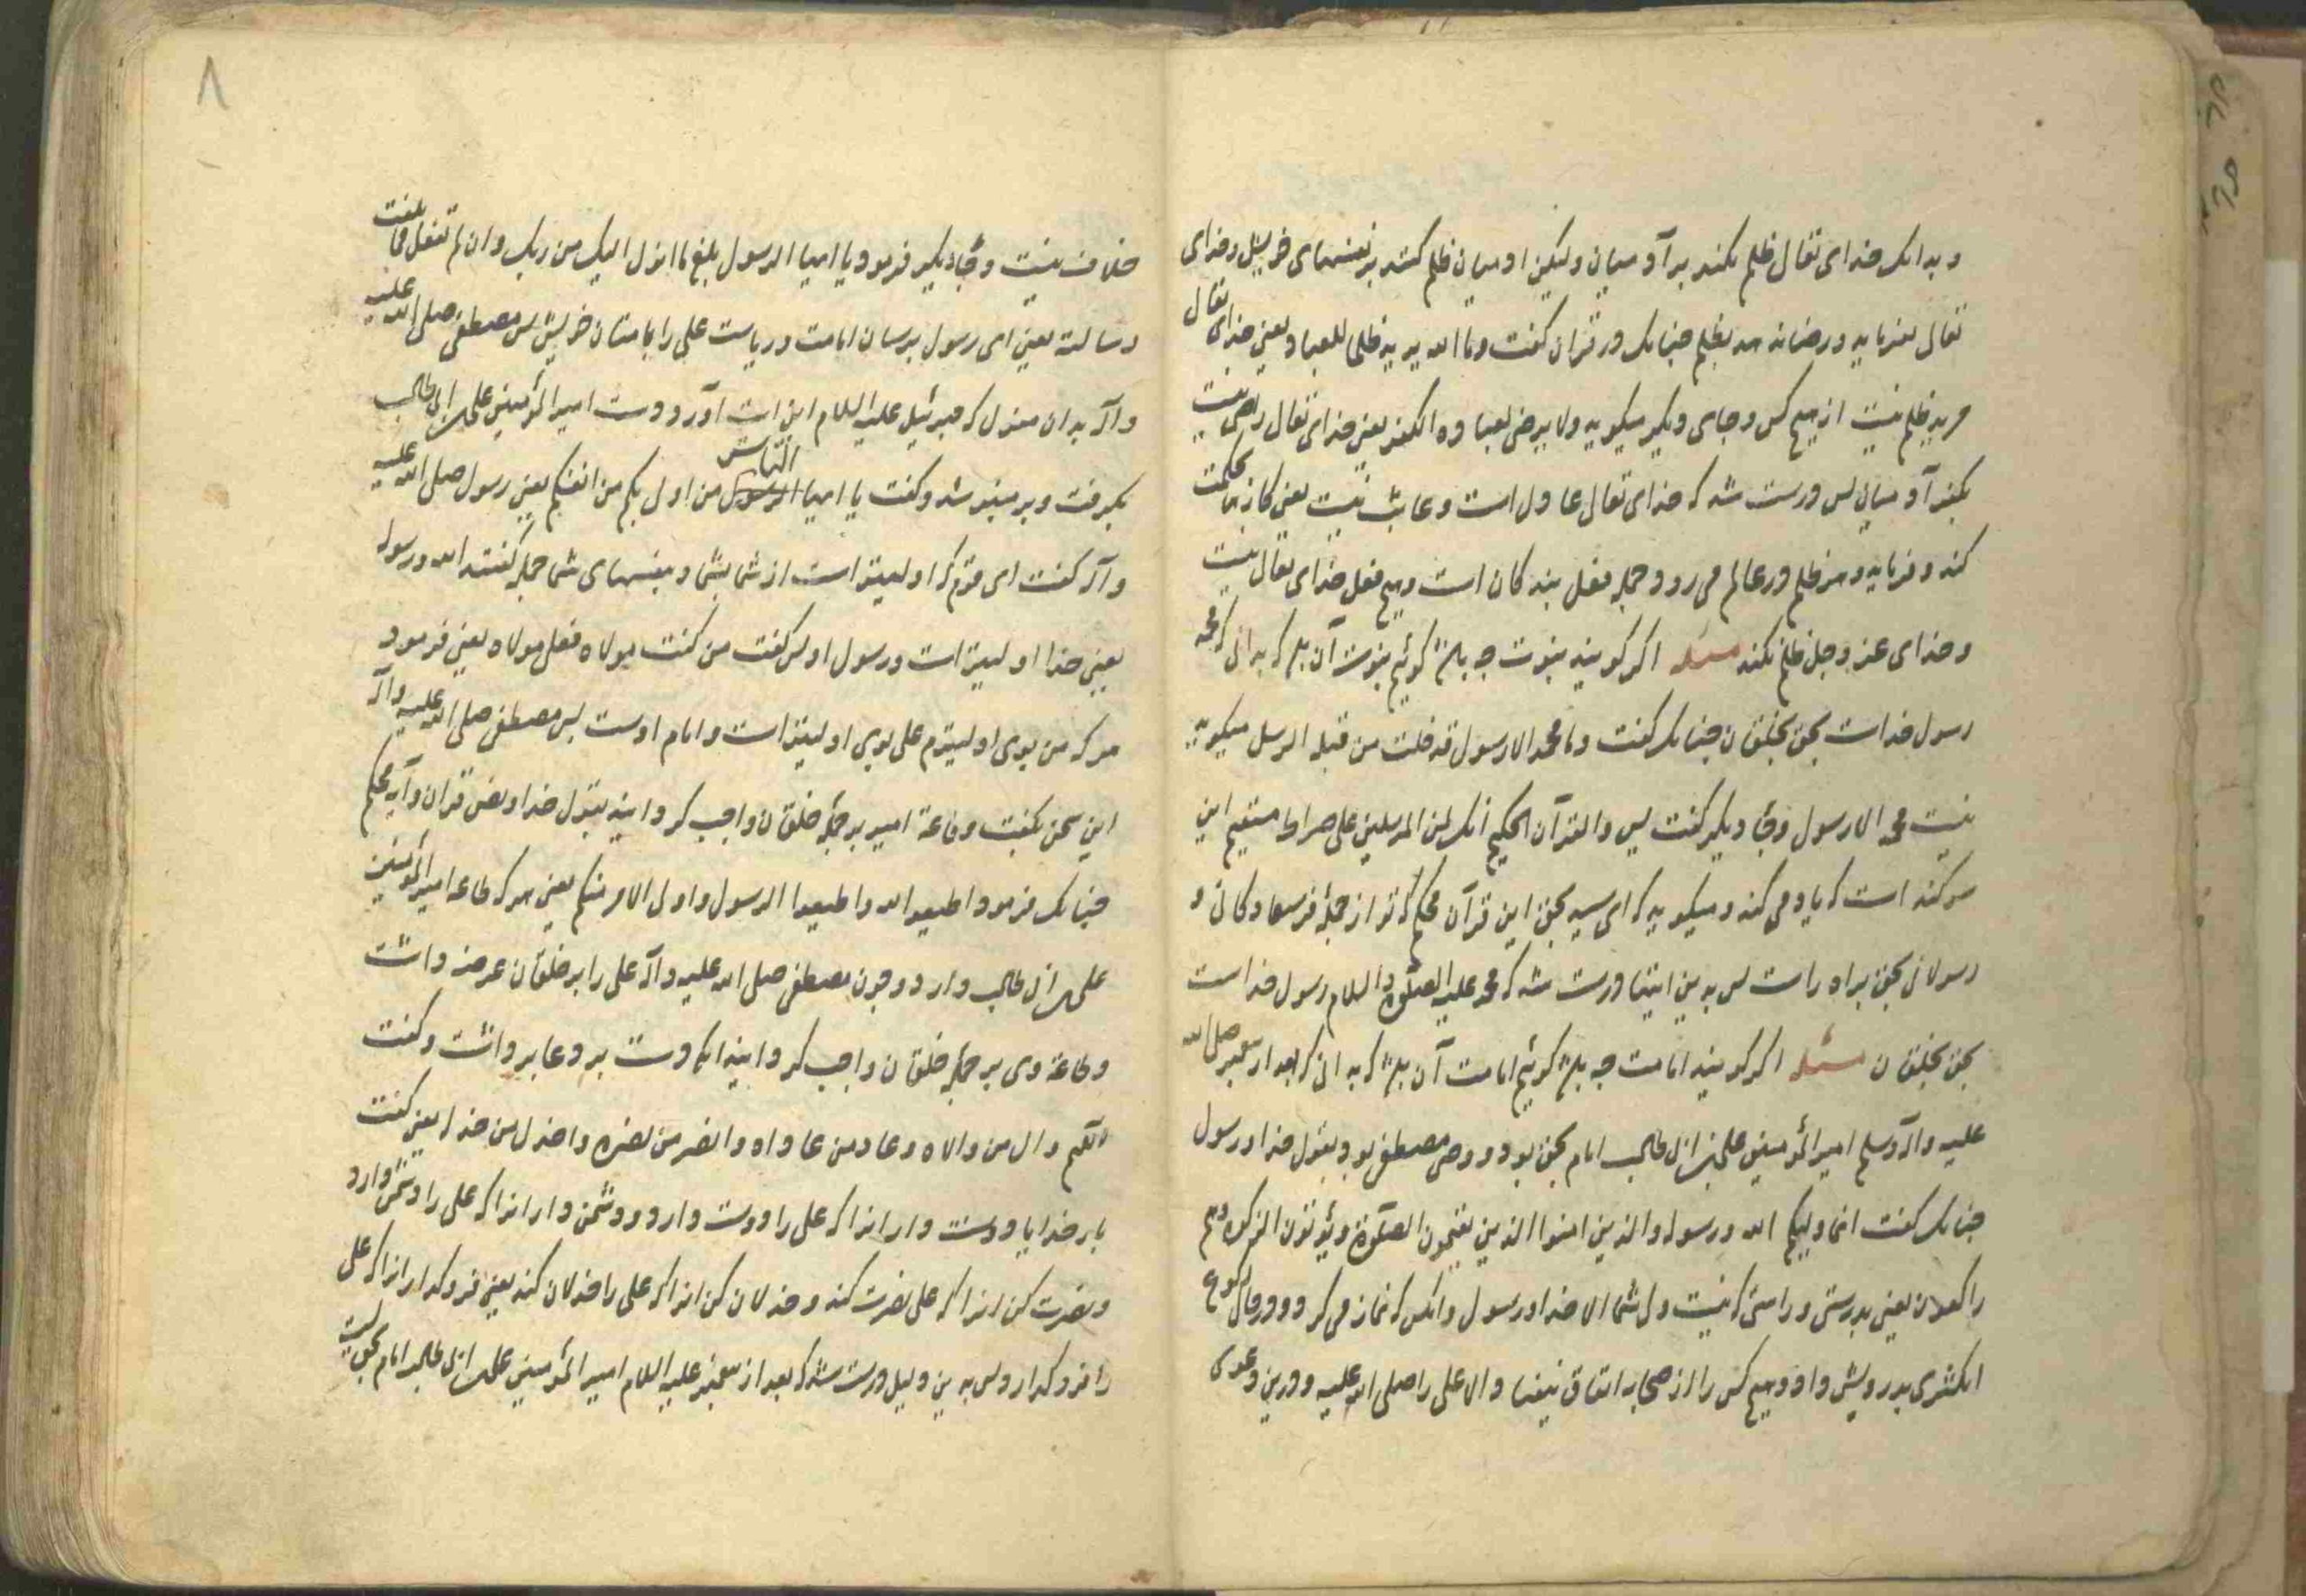 و بدانک خدای تعالی ظلم نکند بر آدمیان ولیکن ادمیان ظلم کنند بر نفسهای خویش و خدای
تعالی نفرماید و رضا ندهد بظلم چنانک در قران گفت وما الله یرید ظلما للعباد یعنی خدای تعالی
مرید ظلم نیست از هیچ کس و جای دیگر میگوید ولا یرضی لعباده الکفر یعنی خدای تعالی راضی نیست
بکفر آدمیان پس درست شد که خدای تعالی عادل است و عابث نیست یعنی کار بحکمت
کند و فرماید و هر ظلم در عالم می رود جمله فعل بندکان است و هیچ فعل خدای تعالی نیست
و خدای عز و جل ظلم نکند مسئله اکر کویند نبوت چه باشد کوئیم نبوت آن باشد که بدانی که محمد
رسول خداست بحق بخلقان چنانک گفت وما محمد الا رسول قد خلت من قبله الرسل میکوید
نیست محمد الا رسول و جای دیگر گفت یس والقرآن الحکیم انک لمن المرسلین علی صراط مستقیم این
سوکند است که یاد می کند و میکوید که ای سید بحق این قرآن محکم که تو از جمله فرستادکانی و
رسولانی بحق براه راست پس بدین ایتها درست شد که محمد علیه الصلوة والسلام رسول خداست
بحق بخلقان مسئله اکر کویند امامت چه باشد کوئیم امامت آن باشد که بدانی که بعد از پیغمبر صلی الله
علیه وآله وسلم امیر المؤمنین علی بن ابی طالب امام بحق بود و وصی مصطفی بود بقول خدا و رسول
چنانک گفت انما ولیکم الله ورسوله والذین امنوا الذین یقیمون الصلوة ویؤتون الزکوة وهم
راکعون یعنی بدرستی و راستی که نیست ولی شما الا خدا و رسول و انکس که نماز می کرد و در حال رکوع
انکشتری بدرویش داد و هیچ کس را از صحابه اتفاق نیفتاد الا علی را صلی الله علیه و درین دعوی
خلاف نیست و جای دیگر فرمود یا ایها الرسول بلغ ما انزل الیک من ربک وان لم تفعل فما بلغت
رسالته یعنی ای رسول برسان امامت و ریاست علی را بامتان خویش پس مصطفی صلی الله علیه
وآله بدان منزل که جبرئیل علیه السلام این ایت آورد دست امیر المؤمنین علی بن ابی طالب
بکرفت و بر منبر شد و گفت یا ایها الرسول الناس من اولی بکم من انفسکم یعنی رسول صلی الله علیه
وآله گفت ای قوم که اولیتر است از شما بشما و بنفسهای شما جمله گفتند الله ورسوله
یعنی خدا اولیتر است و رسول او پس گفت من کنت مولاه فعلی مولاه یعنی فرمود
هرکه من بوی اولیترم علی بوی اولیتر است و امام اوست پس مصطفی صلی الله علیه وآله
این سخن بگفت و طاعة امیر بر جمله خلقان واجب کردانید بقول خدا و نص قران و آیه محکم
چنانک فرمود اطیعوا الله واطیعوا الرسول واولی الامر منکم یعنی هرکه طاعه امیر المؤمنین
علی بن ابی طالب دارد و چون مصطفی صلی الله علیه وآله علی را بر خلقان عرضه داشت
و طاعة وی بر جمله خلقان واجب کردانید انکه دست بر دعا برداشت و گفت
اللّهم وال من والاه وعاد من عاداه وانصر من نصره واخذل من خذله یعنی گفت
بار خدایا دوست دار انرا که علی را دوست دارد و دشمن دار انرا که علی را دشمن دارد
و نصرت کن انرا که علی نصرت کند و خذلان کن انرا که علی را خذلان کند یعنی فروکدار انرا که علی
را فروکدارد پس بدین دلیل درست شد که بعد از پیغمبر علیه السلام امیر المؤمنین علی بن ابی طالب امام بحق است
۸